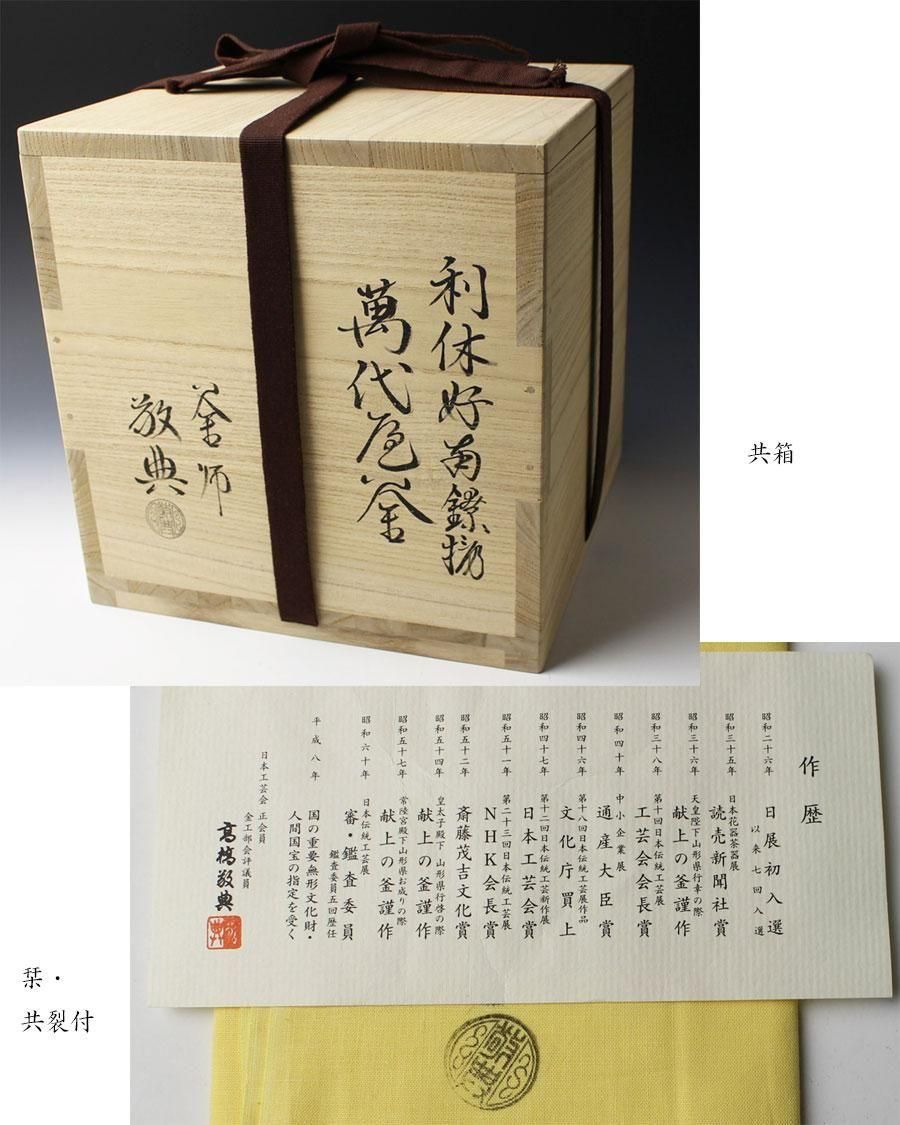 利休好菊鐶摘
萬代屋釜
釜師
敬典
共箱
作歴
昭和二十六年 日展初入選
以来七回入選
昭和三十五年 日本花器茶器展
読売新聞社賞
昭和三十六年 天皇陛下山形県行幸の際
献上の釜謹作
昭和三十八年 第十回日本伝統工芸展
工芸会会長賞
昭和四十年 中小企業展
通産大臣賞
昭和四十六年 第十八回日本伝統工芸展作品
文化庁買上
昭和四十七年 第十二回日本伝統工芸新作展
日本工芸会賞
昭和五十一年 第二十三回日本伝統工芸展
NHK会長賞
昭和五十二年 斎藤茂吉文化賞
昭和五十四年 皇太子殿下山形県行啓の際
献上の釜謹作
昭和五十七年 常陸宮殿下山形県お成りの際
献上の釜謹作
昭和六十年 日本伝統工芸展
審・鑑査委員
鑑査委員五回歴任
平成八年 国の重要無形文化財・
人間国宝の指定を受く
日本工芸会 正会員
金工部会評議員
高橋敬典
栞・
共裂付